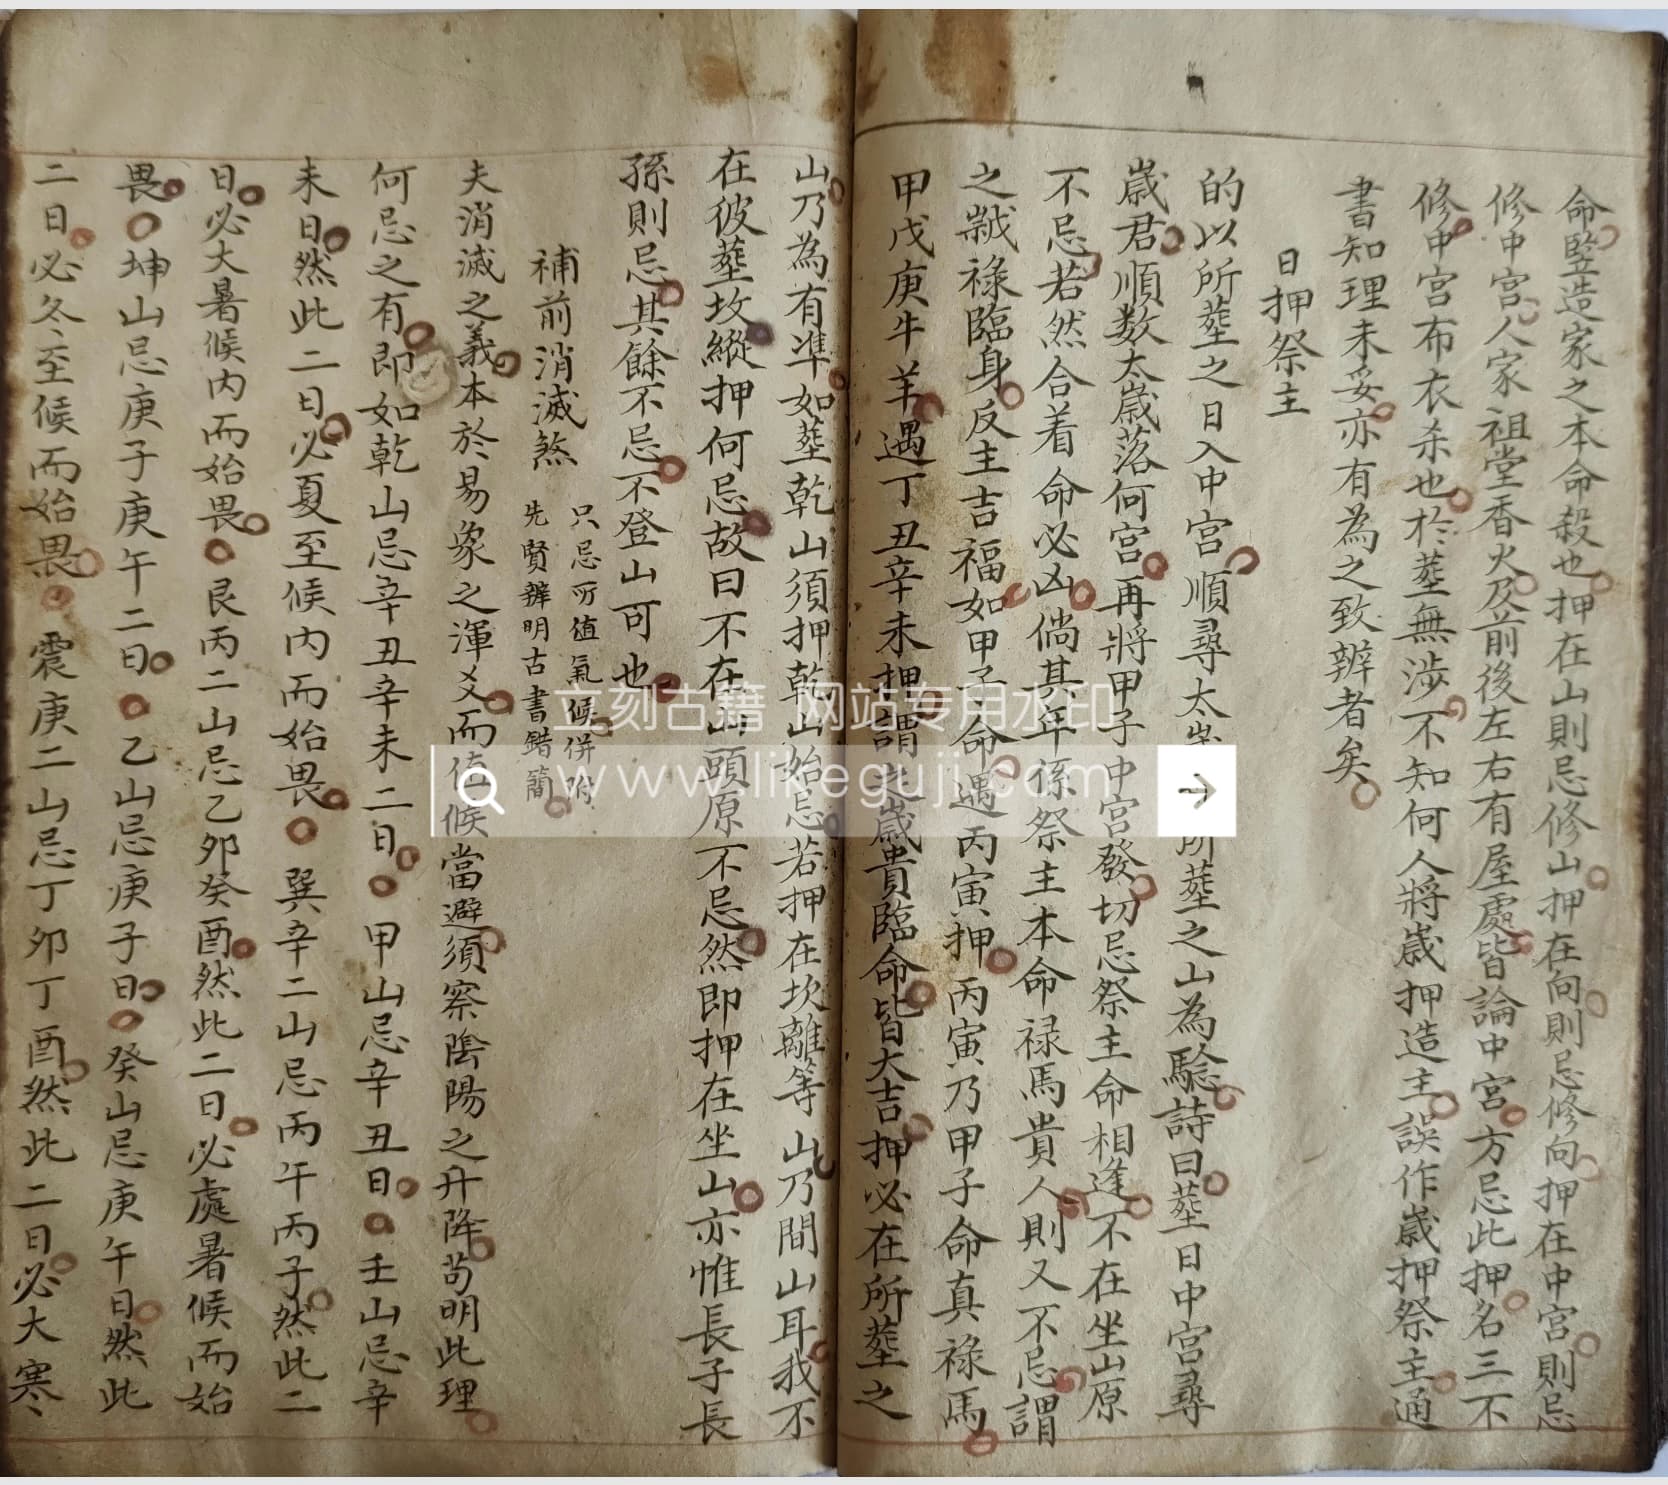 命竪造家之本命殺也押在山則忌修山押在向則忌修向押在中宮則忌
修中宮人家祖堂香火及前後左右有屋處皆論中宮方忌此押名三不
修中宮布衣杀也於塟無涉不知何人將歲押造主誤作歲押祭主通
書知理未妥亦有為之致辨者矣
日押祭主
的以所塟之日入中宮順尋太歲所塟之山為騐詩曰塟日中宮尋
歲君順数太歲落何宮再將甲子中宮發切忌祭主命相逢不在坐山原
不忌若然合着命必凶倘其年係祭主本命禄馬貴人則又不忌謂
之翐禄臨身反主吉福如甲子命遇丙寅押丙寅乃甲子命真禄馬
甲戊庚牛羊遇丁丑辛未押謂之歲貴臨命皆大吉押必在所塟之
山乃為有準如塟乾山須押乾山始忌若押在坎離等山乃間山耳我不
在彼塟坟縱押何忌故曰不在山頭原不忌然即押在坐山亦惟長子長
孫則忌其餘不忌不登山可也
補前消滅煞
只忌所值氣候併附
先賢辨明古書錯簡
夫消滅之義本於易象之渾爻而值候當避須察陰陽之升降苟明此理
何忌之有即如乾山忌辛丑辛未二日甲山忌辛丑日壬山忌辛
未日然此二日必夏至候内而始畏巽辛二山忌丙午丙子然此二
日必大暑候内而始畏艮丙二山忌乙夘癸酉然此二日必處暑候而始
畏坤山忌庚子庚午二日乙山忌庚子日癸山忌庚午日然此
二日必冬至候而始畏震庚二山忌丁夘丁酉然此二日必大寒
立刻古籍 网站专用水印
www.likeguji.com